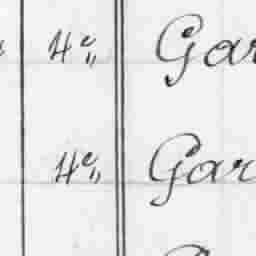 4e„ Gar
4e„ Gar